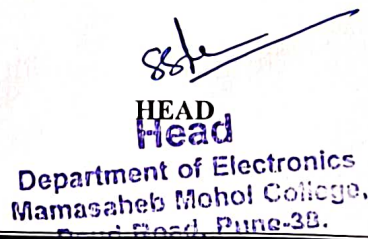 HEAD
Head
Department of Electronics
Mamasaheb Mohol College,
Road, Pune-38.